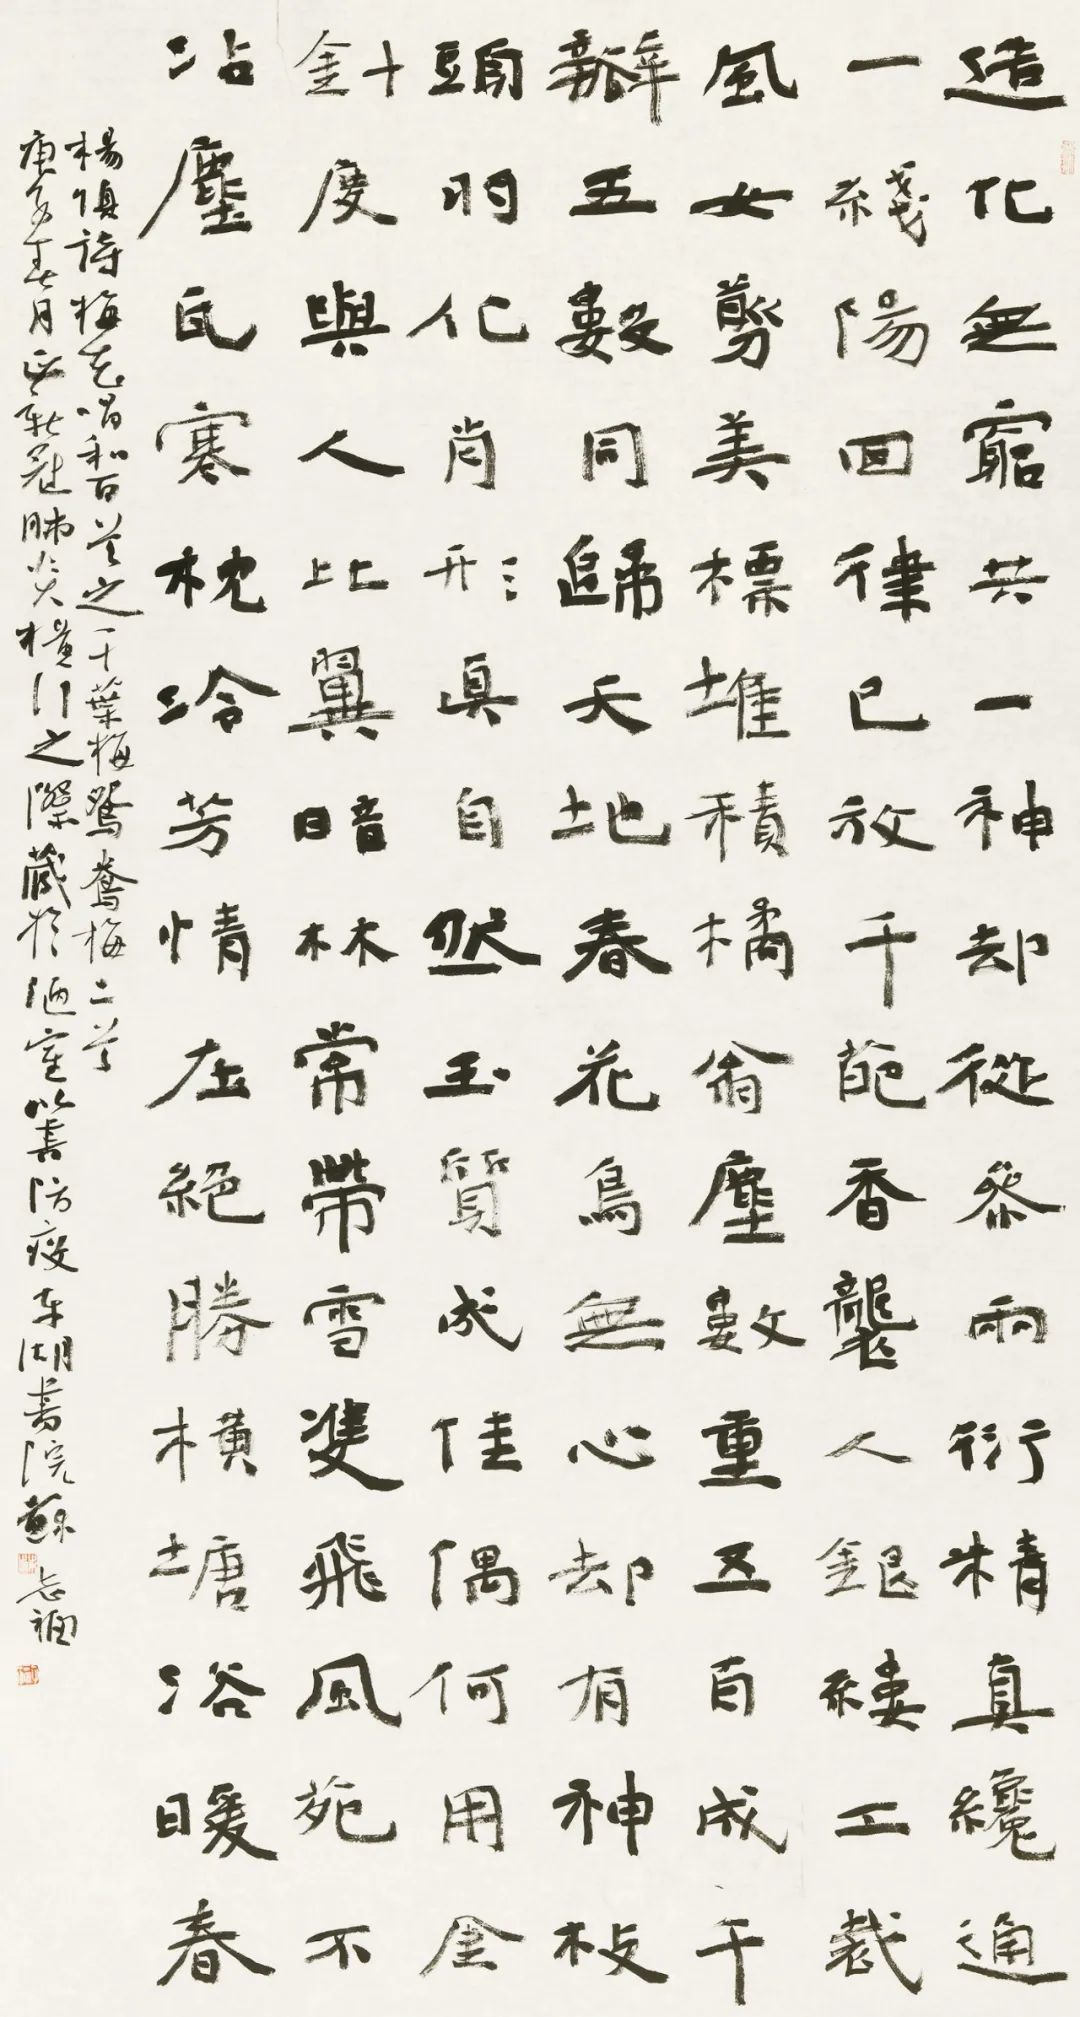 造化無窮共一神却從參兩衍精真纔通
一綫陽回律已放千葩香襲人銀縷工裁
風女剪美標堆積橘翁塵數重五百成千
瓣五數同歸天地春花鳥無心却有神枝
頭羽化肖形真自然玉質成佳偶何用金
針十度與人比翼暗林常帶雪雙飛風苑不
沾塵瓦寒枕冷芳情在絕勝橫塘浴暖春
楊慎詩梅花唱和百首之千葉梅鴛鴦梅二首
庚子春月正新冠肺炎橫行之際藏於陋室以書防疫東湖書院蘇